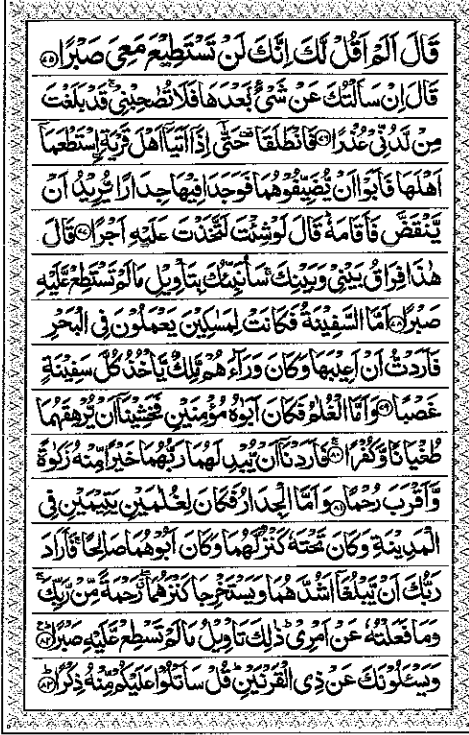 قَالَ اَلَمْ اَقُلْ لَّكَ اِنَّكَ لَنْ تَسْتَطِيْعَ مَعِيَ صَبْرًا ۝۷۵
قَالَ اِنْ سَاَلْتُكَ عَنْ شَیْءٍۭ بَعْدَهَا فَلَا تُصٰحِبْنِیْ ۚ قَدْ بَلَغْتَ
مِنْ لَّدُنِّیْ عُذْرًا ۝۷۶ فَانْطَلَقَا ٝ حَتّٰۤی اِذَاۤ اَتَیَاۤ اَهْلَ قَرْیَةِ ِ۟اسْتَطْعَمَاۤ
اَهْلَهَا فَاَبَوْا اَنْ یُّضَیِّفُوْهُمَا فَوَجَدَا فِیْهَا جِدَارًا یُّرِیْدُ اَنْ
یَّنْقَضَّ فَاَقَامَهٗ ؕ قَالَ لَوْ شِئْتَ لَتَّخَذْتَ عَلَیْهِ اَجْرًا ۝۷۷ قَالَ
هٰذَا فِرَاقُ بَیْنِیْ وَبَیْنِكَ ۚ سَاُنَبِّئُكَ بِتَاْوِیْلِ مَا لَمْ تَسْتَطِعْ عَّلَیْهِ
صَبْرًا ۝۷۸ اَمَّا السَّفِیْنَةُ فَكَانَتْ لِمَسٰكِیْنَ یَعْمَلُوْنَ فِی الْبَحْرِ
فَاَرَدْتُّ اَنْ اَعِیْبَهَا وَكَانَ وَرَآءَهُمْ مَّلِكٌ یَّاْخُذُ كُلَّ سَفِیْنَةٍ
غَصْبًا ۝۷۹ وَاَمَّا الْغُلٰمُ فَكَانَ اَبَوٰهُ مُؤْمِنَیْنِ فَخَشِیْنَاۤ اَنْ یُّرْهِقَهُمَا
طُغْیَانًا وَّكُفْرًا ۝۸۰ فَاَرَدْنَاۤ اَنْ یُّبْدِلَهُمَا رَبُّهُمَا خَیْرًا مِّنْهُ زَكٰوةً
وَّاَقْرَبَ رُحْمًا ۝۸۱ وَاَمَّا الْجِدَارُ فَكَانَ لِغُلٰمَیْنِ یَتِیْمَیْنِ فِی
الْمَدِیْنَةِ وَكَانَ تَحْتَهٗ كَنْزٌ لَّهُمَا وَكَانَ اَبُوْهُمَا صَالِحًا ۚ فَاَرَادَ
رَبُّكَ اَنْ یَّبْلُغَاۤ اَشُدَّهُمَا وَیَسْتَخْرِجَا كَنْزَهُمَا ۖۗ رَحْمَةً مِّنْ رَّبِّكَ ۚ
وَمَا فَعَلْتُهٗ عَنْ اَمْرِیْ ؕ ذٰلِكَ تَاْوِیْلُ مَا لَمْ تَسْطِعْ عَّلَیْهِ صَبْرًا ۝۸۲
وَیَسْـَٔلُوْنَكَ عَنْ ذِی الْقَرْنَیْنِ ؕ قُلْ سَاَتْلُوْا عَلَیْكُمْ مِّنْهُ ذِكْرًا ۝۸۳